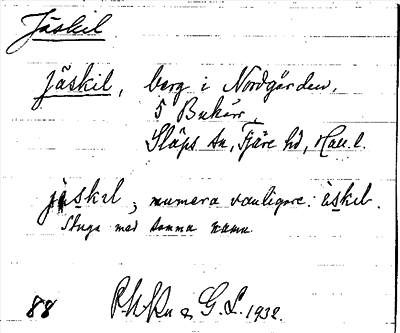 Jäskil
Jäskil, berg i Nordgården,
5 Bukärr,
Släps sn, Fjäre hd, Hall. l.
jäskıl, numera vanligare: èskıl.
Stuga med samma namn.
88 & G. L. 1932.